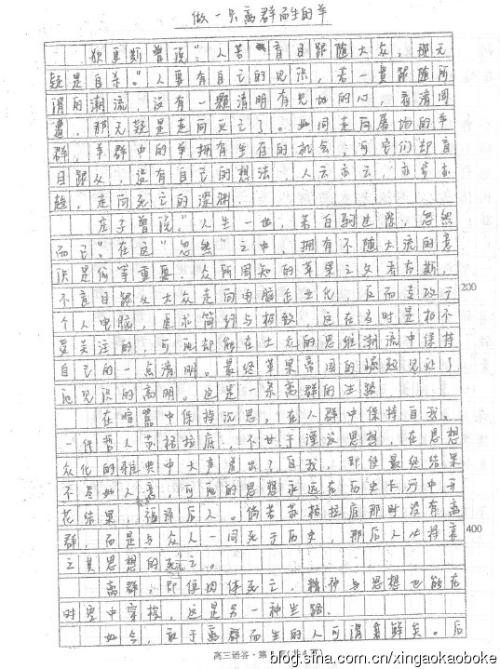 做一只离群而生的羊
狄更斯曾说："人若盲目跟随大众，那无
疑是自杀。"人要有自己的见识，若一直跟随所
谓的潮流，没有一颗清明有见地的心，看清周
围，那无疑是走向死亡了。如同走向屠场的羊
群，羊群中的羊拥有生存的机会，可它们却盲
目跟从，没有自己的想法，人云亦云，亦步亦
趋，走向死亡的深渊。
庄子曾说："人生一世，若白驹过隙，忽然
而已。"在这"忽然"之中，拥有不随大流的意
识是何等重要。众所周知的苹果之父乔布斯，
不盲目跟从大众走向电脑企业化，反而专攻于
个人电脑，追求简约与极致，这在当时是极不
受关注的，可他却能在大众的思维潮流中保持
自己的一点清明。最终苹果帝国的崛起见证了
他见识的高明。这是一条离群的生路。
在喧嚣中保持沉思，在人群中保持自我。
一代哲人苏格拉底，不甘于湮没思想，在思想
众化的雅典中大声喊出了自我，即使最终结果
不尽如人意，可他的思想永远在历史长河中开
花结果，福泽后人。倘若苏格拉底那时没有离
群，而是与众人一同死于历史，那后人必将哀
之其思想的死亡。
离群，即使肉体死亡，精神与思想也能在
时空中穿梭，这是另一种生路。
如今，敢于离群而生的人可谓寡鲜矣。后
200
400
高三语答·第
blog.sina.com.cn/xingaokaoboke